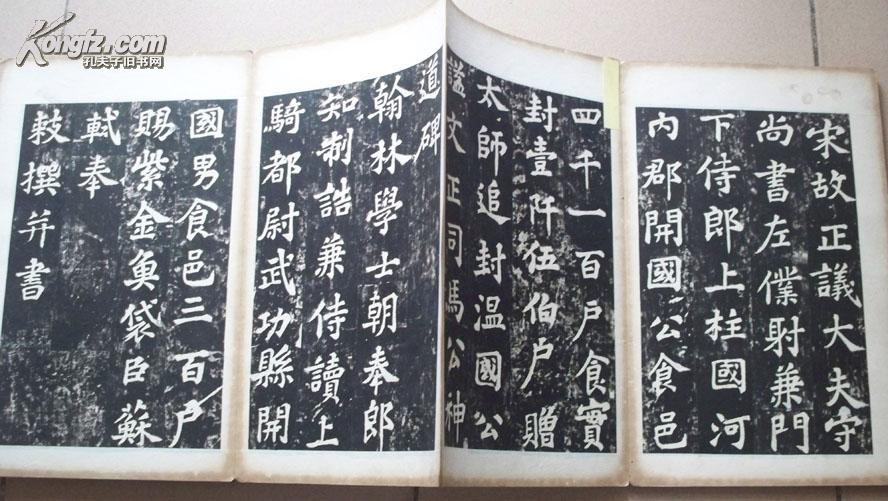 宋故正議大夫守
尚書左僕射兼門
下侍郎上柱國河
內郡開國公食邑
四千一百戶食實
封壹阡伍伯戶贈
太師追封溫國公
謚文正司馬公神
道碑
翰林學士朝奉郎
知制誥兼侍讀上
騎都尉武功縣開
國男食邑三百戶
賜紫金魚袋臣蘇
軾奉
敕撰并書
Kongfz.com
孔夫子旧书网